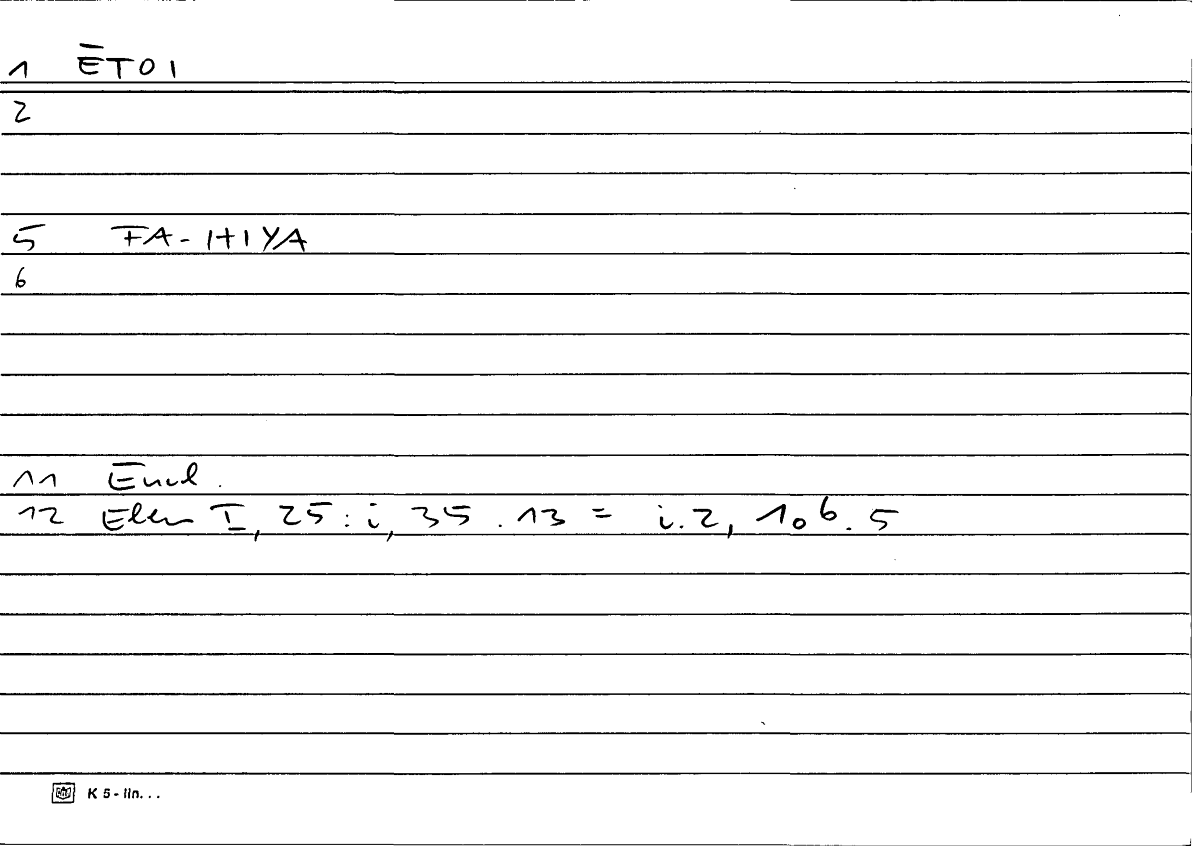 1 ĒTOI
2
5 FA-HIYA
6
11 Eucl.
12 Elem I, 25 : i, 35 . 13 = i.2, 106. 5
K 5 - lin. . .